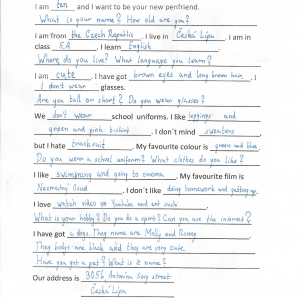 I am ten and I want to be your new penfriend.
What is your name? How old are you?
I am from the Czech Republic. I live in Česká Lípa. I am in
class 5.A. I learn English.
Where do you live? What language you learn?
I am cute. I have got brown eyes and long brown hair. I
I don't wear glasses.
Are you tall or short? Do you wear glasses?
We don't wear school uniforms. I like leggings and
green and pink t-shirt. I don´t mind sweaters,
but I hate tracksuit. My favourite colour is green and blue.
Do you wear a school uniform? What clothes do you like?
I like swimming and going to cinema. My favourite film is
I don´t like doing homework and getting up.
I love watch video on Youtube and eat sushi
What is your hobby? Do you do a sport? Can you use the internet?
I have got a dogs. They name are Molly and
They bodys are black and they are very cute.
Have you got a pet? What is it name?
Our address is 3056, Antonína Sovy street
Česká Lípa